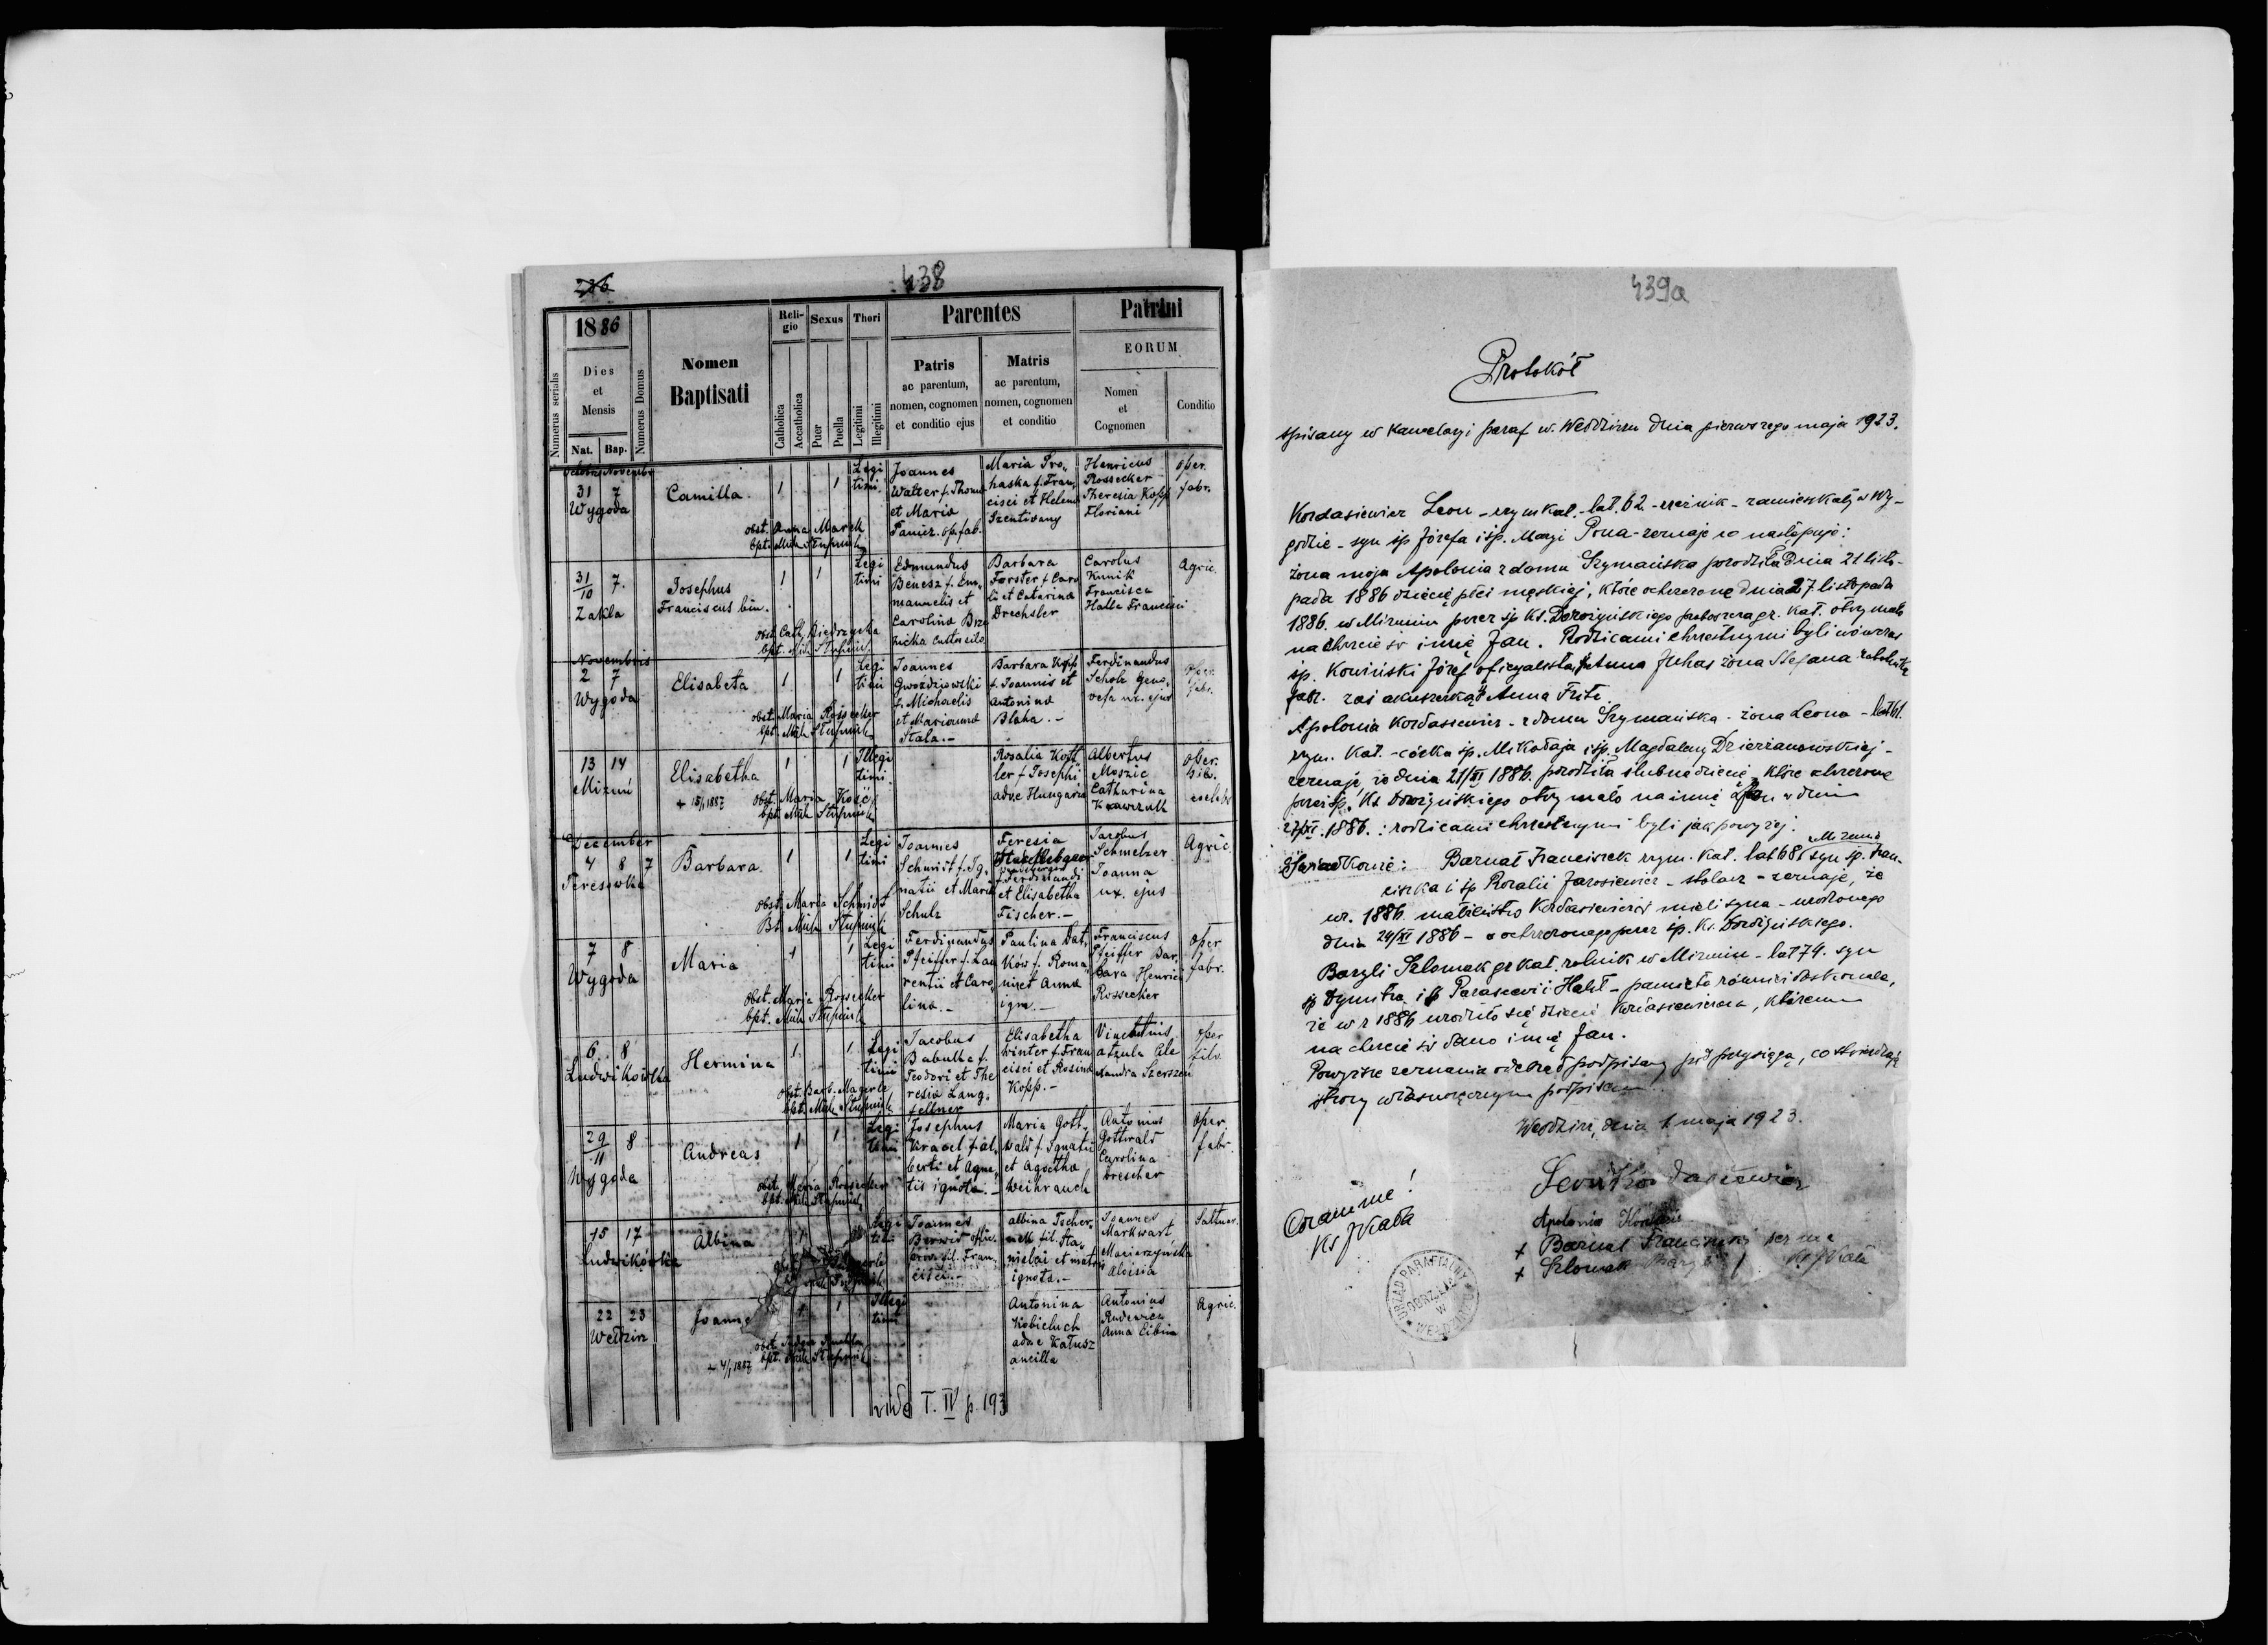 286
438
1886
Dies
et
Mensis
Nat.
Bap.
Numerus serialis
Numerus Domus
Nomen
Baptisati
Reli-
gio
Sexus
Thori
Catholica
Accatholica
Puer
Puella
Legitimi
Illegitimi
Parentes
Patris
ac parentum,
nomen, cognomen
et conditio ejus
Matris
ac parentum,
nomen, cognomen
et conditio
Patrini
EORUM
Nomen
et
Cognomen
Conditio
31 7
Wygoda
Camilla
1 1
Legi
timi
obst. Anna Marek
bpt. Mich Stupnicki
Joannes
Walter f. Thoma
et Maria
Panier. op. fab.
Maria Pro„
haska f. Fran„
cisci et Helena
Szentivany
Henricus
Rossecker
Theresia Kopp
Floriani
oper.
fabr.
31/10 7.
Zakla
Josephus
Franciscus bin.
1 1
Legi
timi
Edmundus
Benesz f. Em„
manuelis et
Carolina
Barbara
Forster f. Caro
li et Catarina
Drechsler
Carolus
Kunik
Francisca
Halla Francisci
Agric.
Novembris
2 7
Wygoda
Elisabeta
1 1
Legi
timi
obst. Maria Rossecker
bpt. Mich Stupnicki
Joannes
Gwoździowski
f. Michaelis
et Marianna
Stala.-
Barbara Kopp
f. Joannis et
Antonina
Blaha.-
Ferdinandus
Scholz Geno„
vefa ux. ejus
oper.
fabr.
13 14
Mizuń
Elisabetha
+ 15/1 1887
1 1
Illegi
timi
obst. Maria Kość
bpt. Mich Stupnicki
Rosalia Kott„
ler f. Josephi
adve Hungaria
Albertus
Moszic
Catharina
Krawczuk
oper.
December
4 8 7
Teresówka
Barbara
1 1
Legi
timi
obst. Maria Schmidt
Bt. Mich Stupnicki
Joannes
Schmidt f. Ig„
natii et Maria
Schulz
Teresia
f. Ferdinandi
et Elisabetha
Fischer.-
Jacobus
Schmelzer
Joanna
ux. ejus
Agric.
7 8
Wygoda
Maria
1 1
Legi
timi
obst. Maria Rossecker
bpt. Mich Stupnicki
Ferdinandus
Pfeiffer f. Lau
rentii et Caro„
lina.-
Paulina Dat„
ków f. Roma„
ni et Anna
ign.-
Franciscus
Pfeiffer Bar„
bara Henrici
Rossecker
oper
fabr.
6 8
Ludwikówka
Hermina
1 1
Legi
timi
obst. Barb. Magerle
bpt. Mich Stupnicki
Jacobus
Babulka f.
Teodori et The
resia Lang„
fellner
Elisabetha
Winter f. Fran
cisci et Rosina
Kopp.-
oper
silv.
29/11 8
Wygoda
Andreas
1 1
Legi
timi
obst. Maria Rossecker
bpt. Mich Stupnicki
Josephus
Kracel f. al„
berti et Agne„
tis ignota.-
Maria Gott„
wald f. Ignatii
et Agatha
Weihrauch
Antonius
Gottwald
Carolina
Drescher
oper.
fabr.
15 17
Ludwikówka
Albina
1
Legi
timi
Joannes
fil. Fran„
cisci.-
Albina Tscher„
nek fil. Sta„
nislai et matris
ignota.-
Joannes
Markwart
Aloisia
Saltuar.
22 23
Wełdzirz
1 1
Illegi
timi
+ 4/1 1887
bpt. Mich Stupnicki
Antonina
Kobieluch
adve Kałusz
ancilla
Antonius
Rudewicz
Anna Eibin
Agric.
vide T. IV p. 193
439a
Protokół
spisany w kancelaryi paraf w. Wełdzirzu dnia pierwszego maja 1923.
Kordasiewicz Leon - rzym kat. - lat. 62 - rzeźnik - zamieszkały w Wy-
godzie - syn śp Józefa i śp. Maryi Pona - zeznaje co następuje:
Żona moja Apolonia z domu Szymańska porodziła dnia 21 listo-
pada 1886 dziecię płci męskiej, które ochrzczone dnia 27. listopada
1886. w Mizuniu przez śp Ks. Dorożyńskiego proboszcza gr. kat. otrzymało
na chrzcie św imię Jan. Rodzicami chrzestnymi byli wówczas
śp. Kowiński Józef oficyalista, Anna Juhas żona Stefana robotnika
fabr. zaś akuszerką Anna Fritz.
Apolonia Kordasiewicz - z domu Szymańska - żona Leona - lat 61.
rzym. kat. - córka śp. Mikołaja i śp. Magdaleny Dzierżanowskiej -
zeznaje, że dnia 21/XI 1886. porodziła ślubne dziecię, które ochrzczone
przez śp. Ks Dorożyńskiego otrzymało na imię Jan w dniu
27/XI. 1886. : rodzicami chrzestnymi byli jak powyżej.
Świadkowie: Barnat Franciszek rzym. kat. lat 68 z Mizunia syn śp. Fran-
ciszka i śp Rozalii Jarosiewicz - stolarz - zeznaje, że
w r. 1886. małżeństwo Kordasiewiczów mieli syna - urodzonego
dnia 24/XI 1886 - a ochrzczonego przez śp. Ks. Dorożyńskiego.
Bazyli Szlomak gr kat. rolnik w Mizuniu - lat 74. syn
śp Dymitra i śp Parascewii Hałit - pamięta również doskonale,
że w r 1886 urodziło się dziecię Kordasiewiczom, któremu
na chrzcie św dano imię Jan.
Powyższe zeznania odebrał podpisany pod przysięgą, co stwierdzają
strony własnoręcznym podpisem.
Wełdzirz, dnia 1. maja 1923.
Leon Kordasiewicz
Apolonia
+ Barnat Franciszek
+ Szlomak Bazyli
Coram me!
URZĄD PARAFIALNY
OBRZ. ŁAC.
W
WEŁDZIRZU